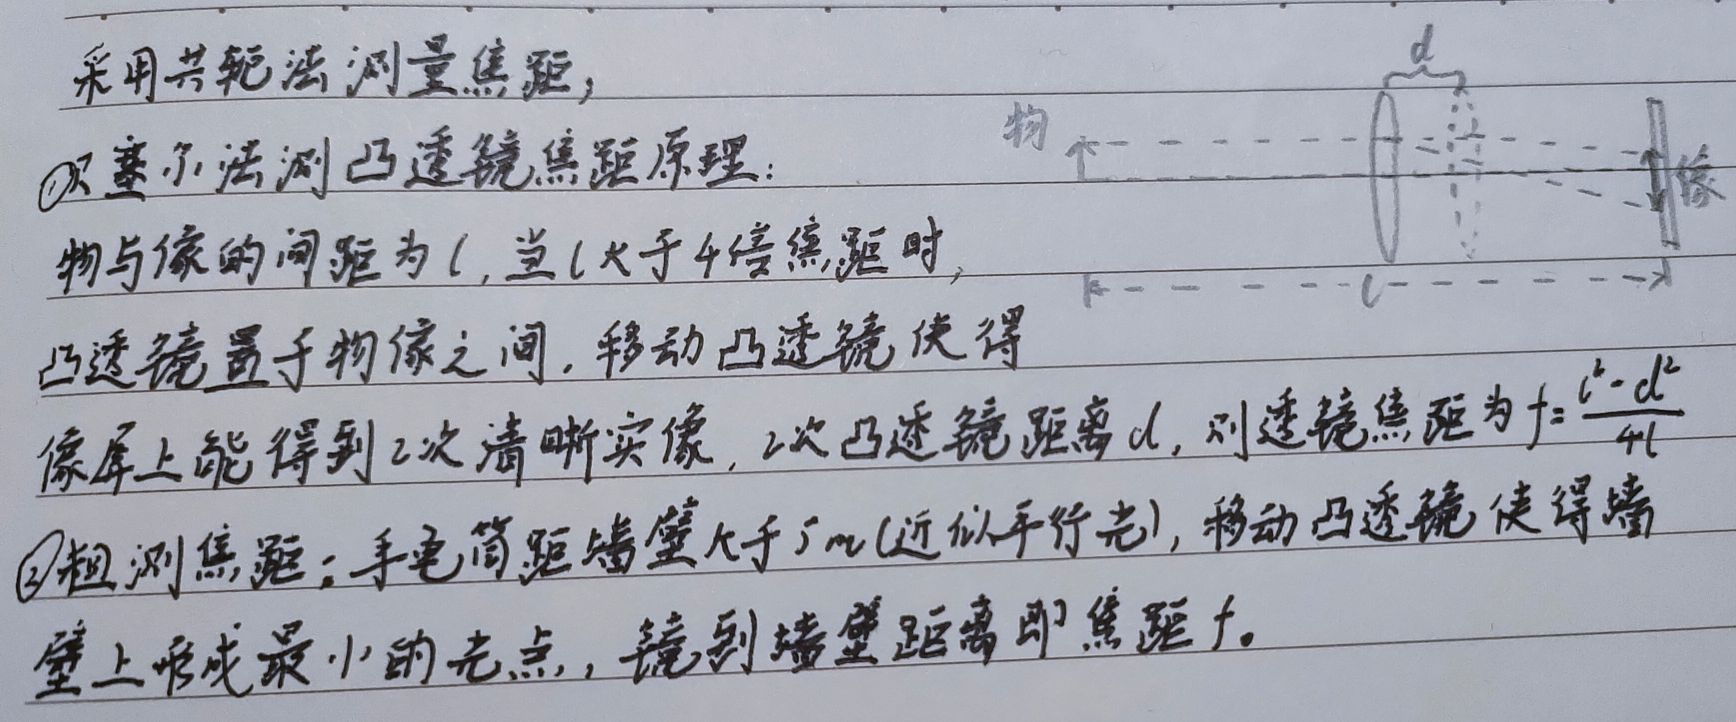 采用共轭法测量焦距，
d
物
①贝塞尔法测凸透镜焦距原理：
像
物与像的间距为l，当l大于4倍焦距时，
l
凸透镜置于物像之间，移动凸透镜使得
像屏上能得到2次清晰实像，2次凸透镜距离d，则透镜焦距为f=\frac{l²-d²}{4l}
②粗测焦距：手电筒距墙壁大于5m（近似平行光），移动凸透镜使得墙
壁上形成最小的光点，镜到墙壁距离即焦距f。